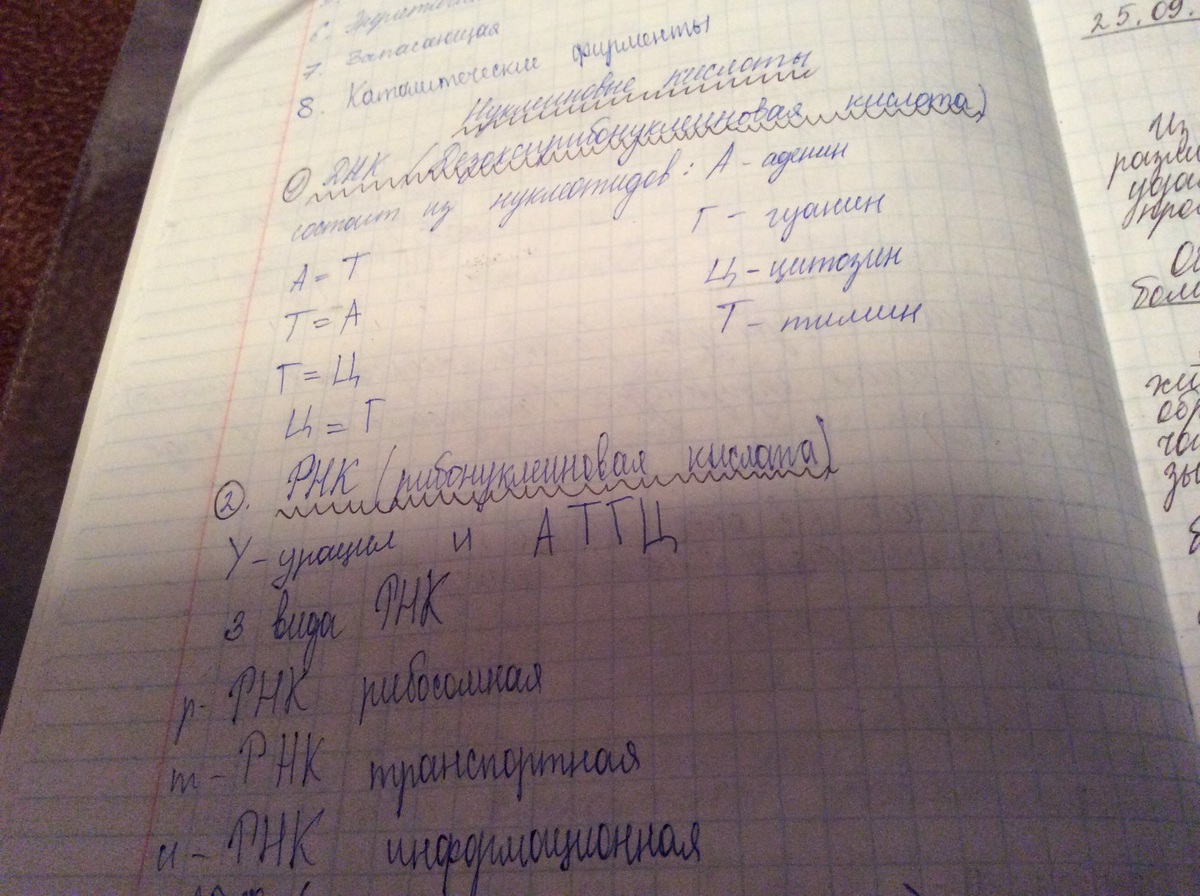 6.
7. Запасающая
8. Каталитические фирменты
Нуклеиновые кислоты
1 ДНК (Дезоксирибонуклеиновая кислата)
состоит из нуклеотидов: А - аденин
Г - гуанин
А = Т
Ц - цитозин
Т = А
Т - тимин
Г = Ц
Ц = Г
2. РНК (рибонуклеиновая кислата)
У - урацил и А Т Г Ц
3 вида РНК
р - РНК рибосомная
т - РНК транспортная
и - РНК информационная
25.09.
Из